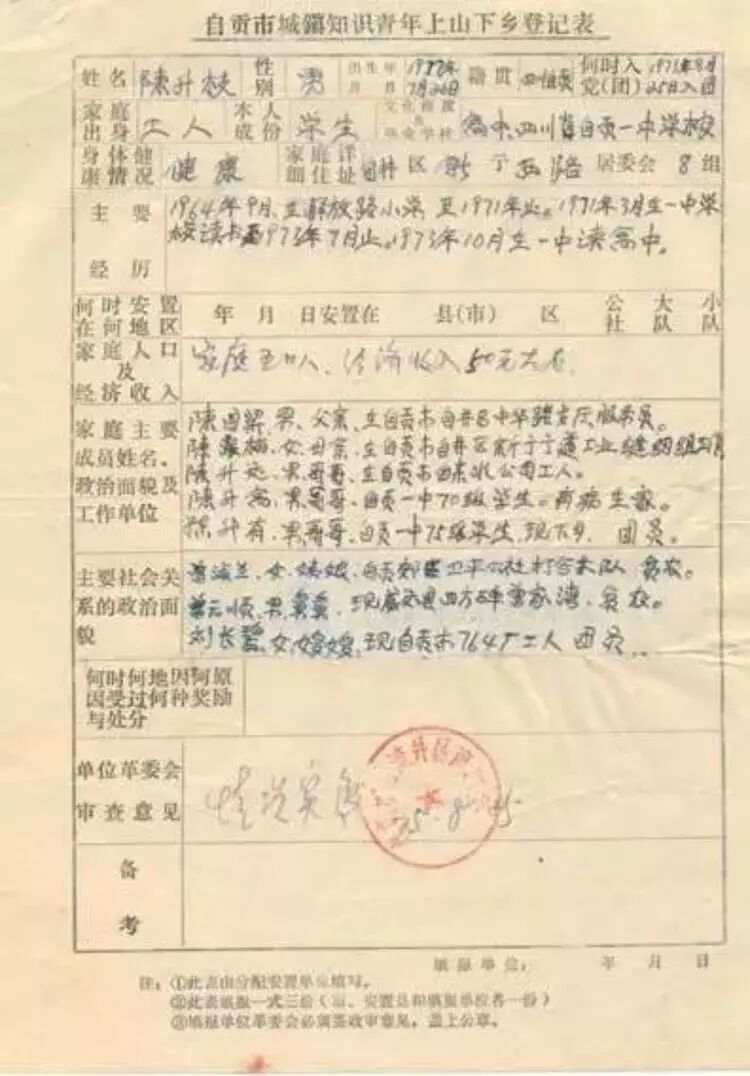 自贡市城镇知识青年上山下乡登记表
姓名 陳升 性别 男 出生年月 年7月26日 籍贯 何时入党(团) 1973年8月25日入团
家庭出身 工人 本人成份 学生 文化程度 高中.四川省自贡一中学校
身体健康情况 健康 家庭详细住址 自井 区 新 字 西路 居委会 8 组
主要经历 1964年9月,在解放路小学,至1971年止。1971年3月在一中学
校读书至1973年7月止。1973年10月在一中读高中。
何时安置在何地区 年 月 日安置在 县(市) 区 公社 大队 小队
家庭人口及经济收入 家庭 人、经济收入50元左右.
家庭主要成员姓名、政治面貌及工作单位
陳 男、父亲、在自贡市自井区中华路 服务员。
陳 梅、女、母亲、在自贡市自井区新 工业缝纫组
陳升 、男哥哥、在自贡市 公司工人。
陳升 、男、哥哥、自贡一中70级学生。有病在家。
陈升有、男哥哥、自贡一中75级学生、现下乡、团员。
主要社会关系的政治面貌
兰、女、姨娘、自贡郊区卫平公社 大队 贫农。
曾元顺、男、舅舅、现 四方碑曾家湾、贫农。
刘长 、女、 、现自贡市764厂工人 团员
何时何地因何原因受过何种奖励与处分
单位革委会审查意见 情况属实 75.8.
备考
填报单位: 年 月 日
注:①此表由分配安置单位填写。
②此表填报一式三份(市、安置县和填报单位各一份)
③填报单位革委会必须签政审意见,盖上公章。